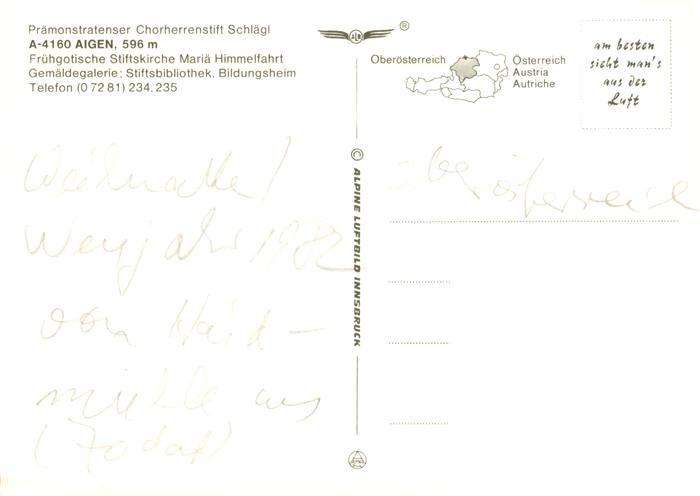 Prämonstratenser Chorherrenstift Schlägl
A-4160 AIGEN, 596 m
Frühgotische Stiftskirche Mariä Himmelfahrt
Gemäldegalerie; Stiftsbibliothek, Bildungsheim
Telefon (0 72 81) 234, 235
ALB ®
Oberösterreich
Österreich
Austria
Autriche
am besten
sieht man's
aus der
Luft
© ALPINE LUFTBILD INNSBRUCK
1982
vom
aus